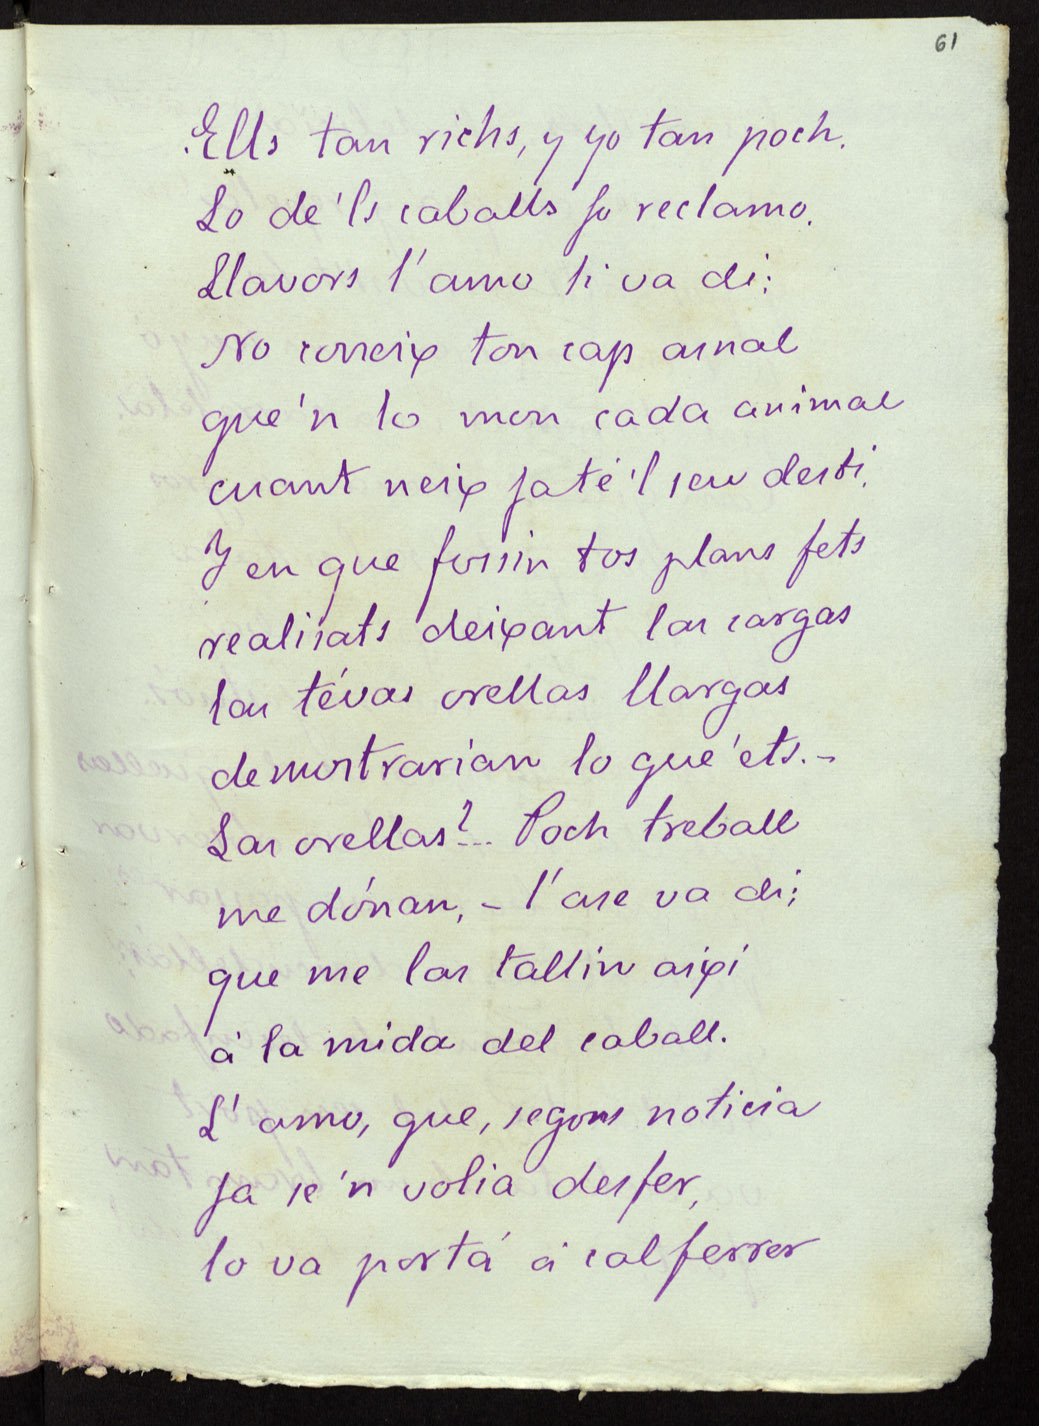 61
Ells tan richs, y yo tan poch.
Lo de 'ls caballs jo reclamo.
Llavors l'amo li va di:
No coneix ton cap asnal
que'n lo mon cada animal
cuant neix ja té 'l seu destí.
Y en que fossin tos plans fets
realisats deixant las cargas
las tévas orellas llargas
demostrarían lo que'ets.-
Las orellas?... Poch treball
me dónan, - l'ase va di;
que me las tallin aixi
á la mida del caball.
L'amo, que, segons noticia
ja se'n volia desfer,
lo va portá á cal ferrer